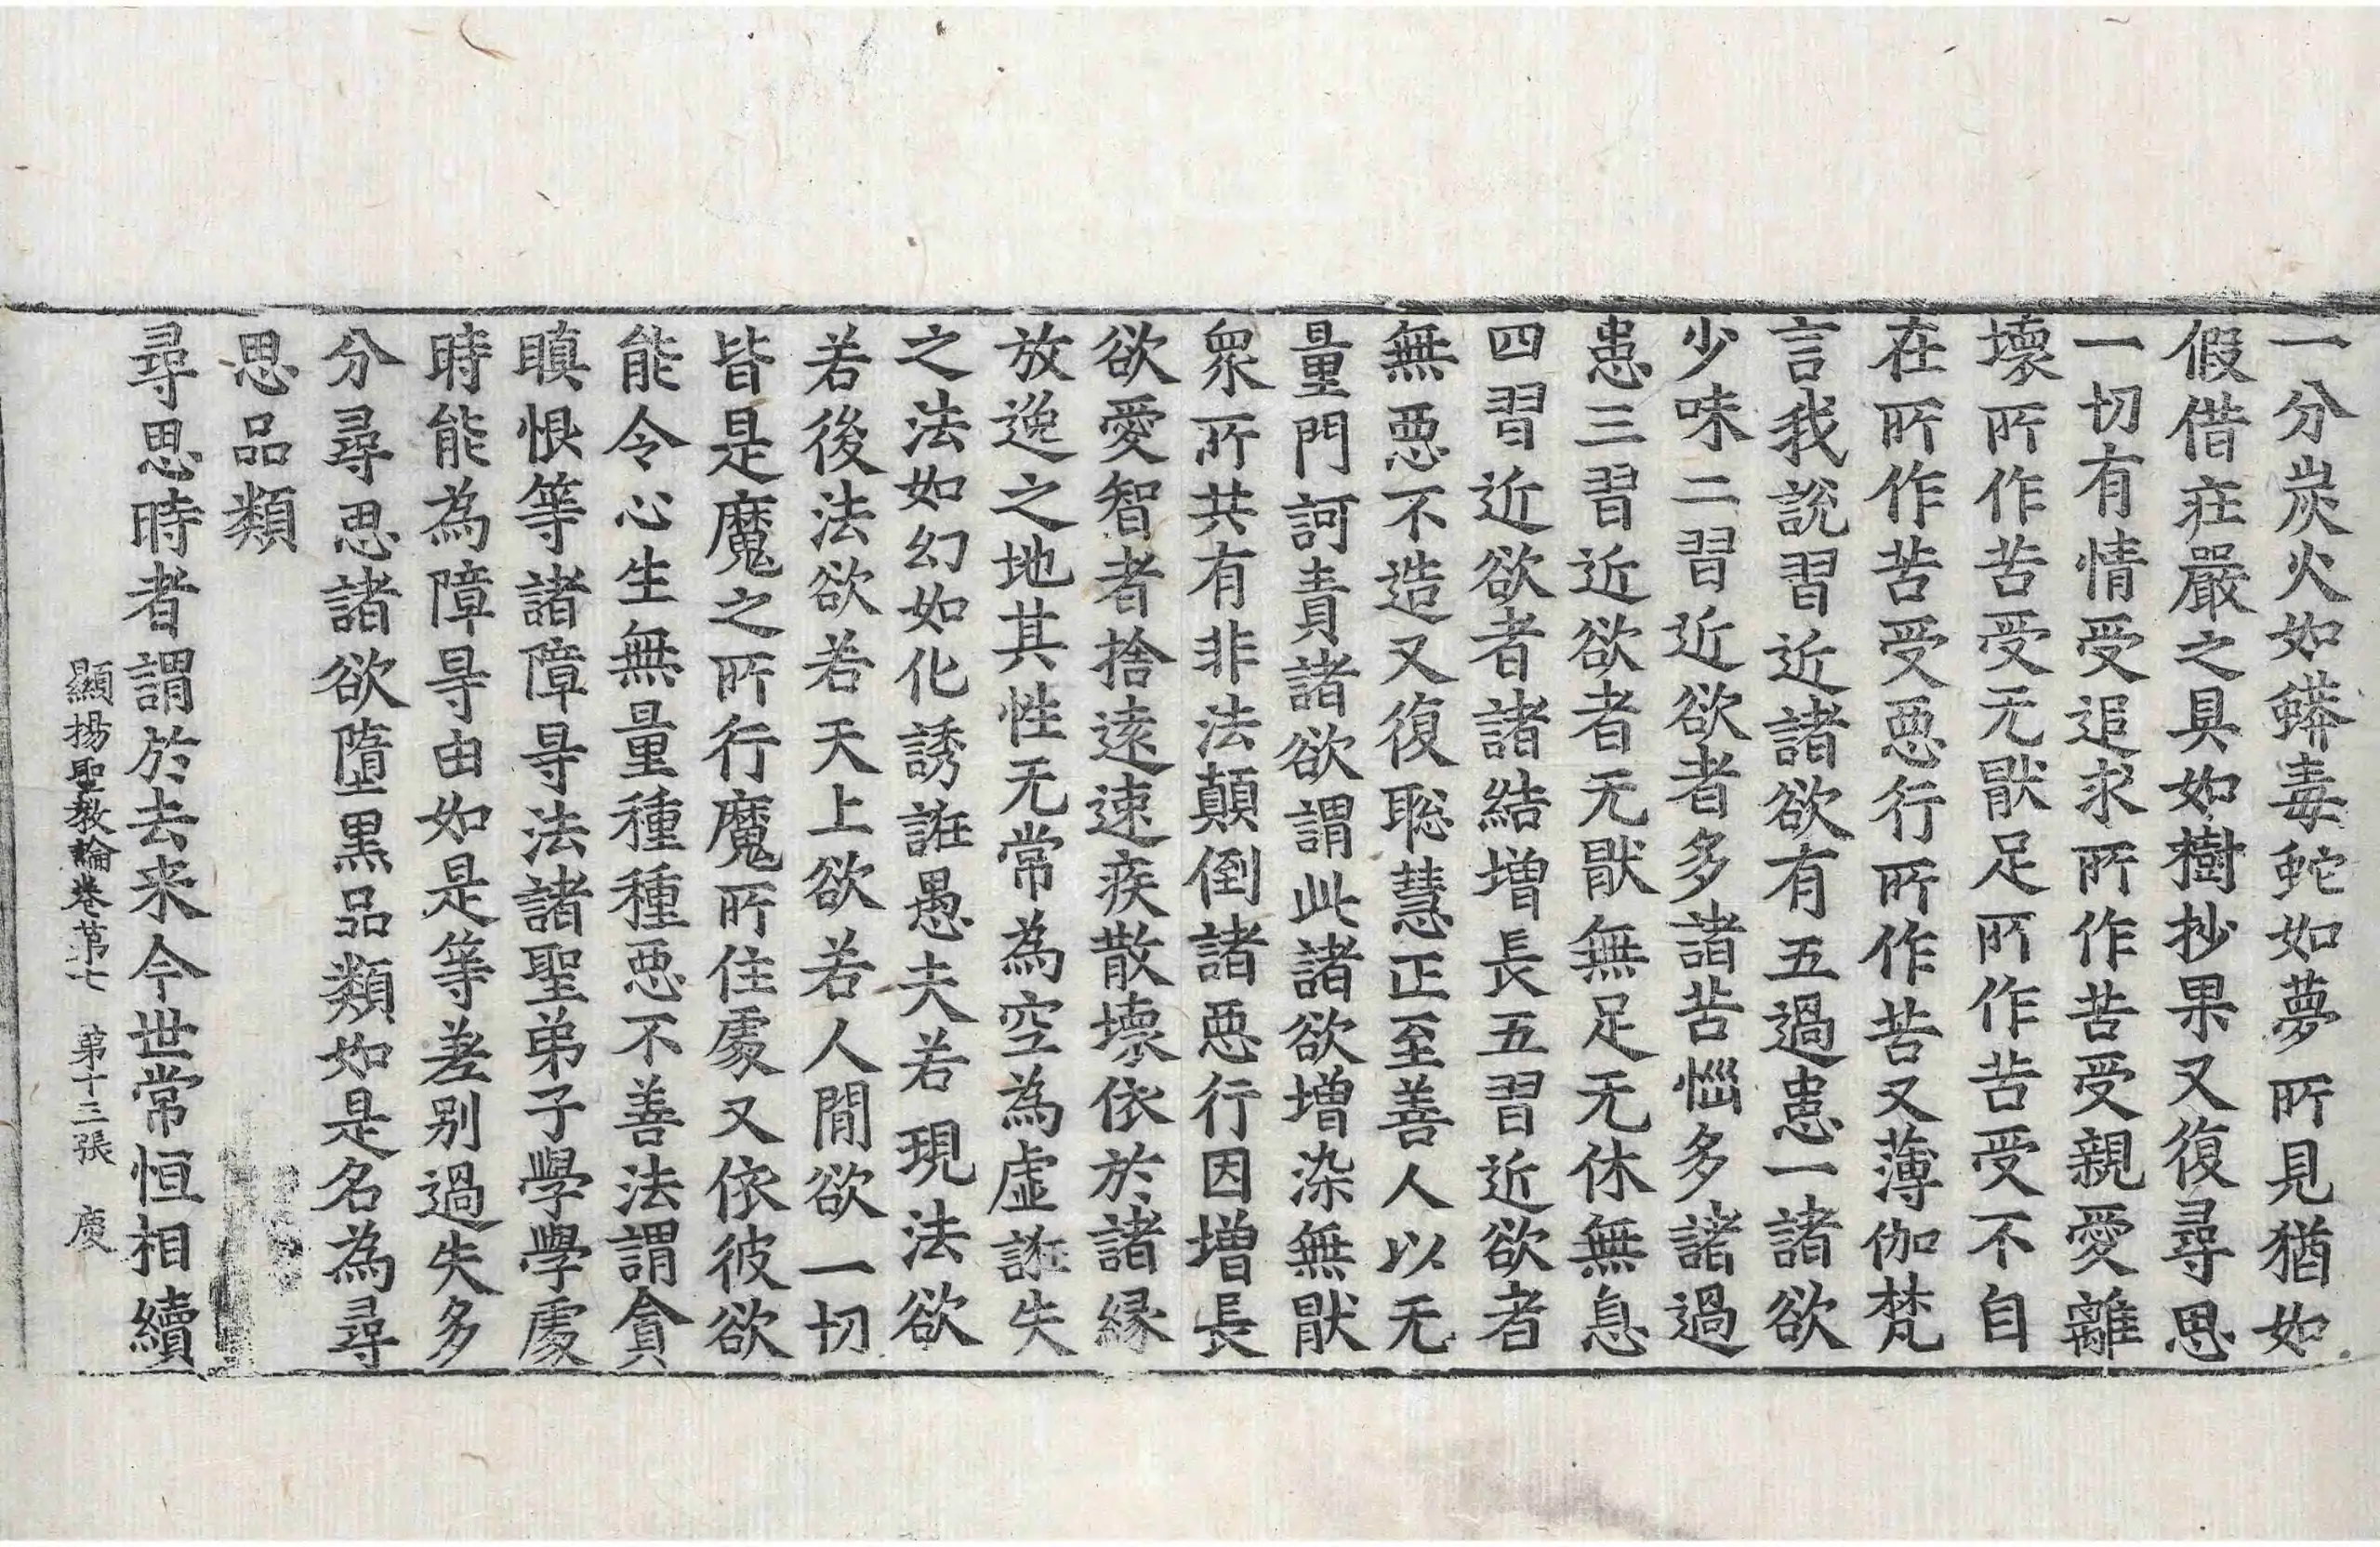 一分炭火如蟒毒蛇如夢所見猶如
假借莊嚴之具如樹抄果又復尋思
一切有情受追求所作苦受親愛離
壞所作苦受无猒足所作苦受不自
在所作苦受惡行所作苦又薄伽梵
言我說習近諸欲有五過患一諸欲
少味二習近欲者多諸苦惱多諸過
患三習近欲者无猒無足无休無息
四習近欲者諸結增長五習近欲者
無惡不造又復聡慧正至善人以无
量門訶責諸欲謂此諸欲增染無猒
眾所共有非法顛倒諸惡行因增長
欲愛智者捨遠速疾散壞依於諸緣
放逸之地其性无常為空為虛誑失
之法如幻如化誘誑愚夫若現法欲
若後法欲若天上欲若人間欲一切
皆是魔之所行魔所住處又依彼欲
能令心生無量種種惡不善法謂貪
瞋恨等諸障㝵法諸聖弟子學學處
時能為障㝵由如是等差别過失多
分尋思諸欲墮黑品類如是名為尋
思品類
尋思時者謂於去来今世常恒相續
顯揚聖教論卷第七 第十三張 庚